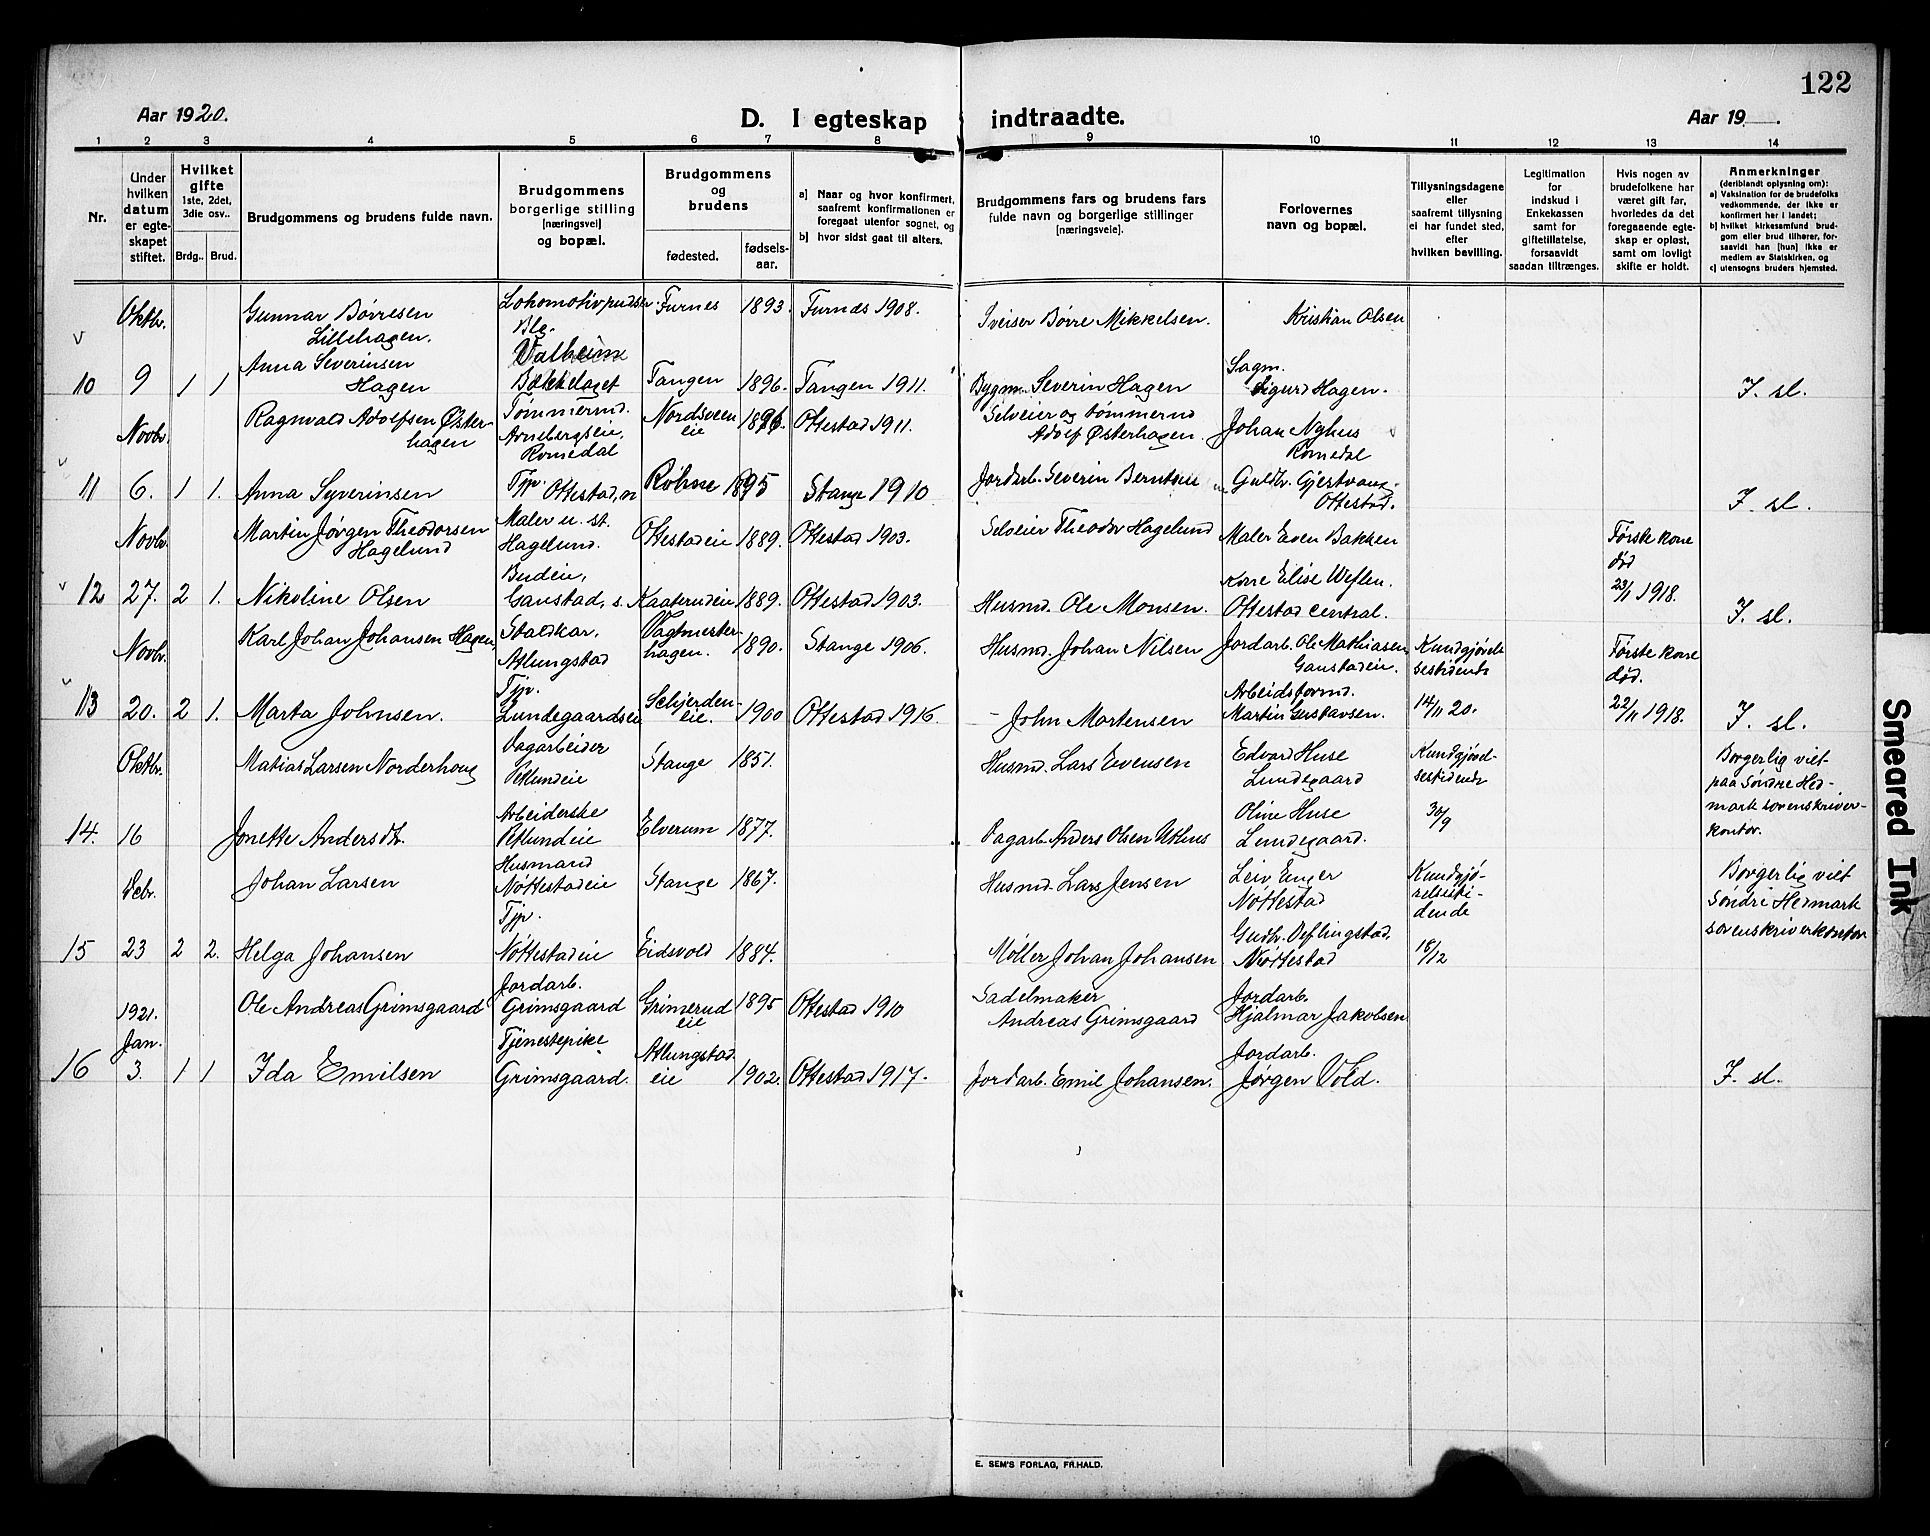 122
Aar 1920.
D. I egteskap indtraadte.
Aar 19 .
1 2 3 4 5 6 7 8 9 10 11 12 13 14
Nr.
Under hvilken datum er egte-skapet stiftet.
Hvilket gifte 1ste, 2det, 3die osv..
Brdg.. Brud.
Brudgommens og brudens fulde navn.
Brudgommens borgerlige stilling [næringsvei] og bopæl.
Brudgommens og brudens
fødested.
fødsels-aar.
a) Naar og hvor konfirmert, saafremt konfirmationen er foregaat utenfor sognet, og
b) hvor sidst gaat til alters.
Brudgommens fars og brudens fars fulde navn og borgerlige stillinger [næringsveie].
Forlovernes navn og bopæl.
Tillysningsdagene eller saafremt tillysning ei har fundet sted, efter hvilken bevilling.
Legitimation for indskud i Enkekassen samt for giftetillatelse, forsaavidt saadan tiltrænges.
Hvis nogen av brudefolkene har været gift før, hvorledes da det foregaaende egte-skap er opløst, samt om lovligt skifte er holdt.
Anmerkninger (deriblandt oplysning om):
a) Vaksination for de brudefolks vedkommende, der ikke er konfirmert her i landet;
b) hvilket kirkesamfund brud-gom eller brud tilhører, for-saavidt han [hun] ikke er medlem av Statskirken, og
c) utensogns bruders hjemsted.
Oktbr. Gunnar Børresen Lillehagen. Lokomotivpudser Blg. Furnes 1893. Furnes 1908. Sveiser Børre Mikkelsen. Kristian Olsen
10 9 1 1 Anna Severinsen Hagen Valheim Bækkelaget Tangen 1896. Tangen 1911. Bygm. Severin Hagen Sagm. Sigurd Hagen. F. sl.
Novbr. Ragnvald Adolfsen Øster-hagen Tømmermd. Arnebergseie, Romedal Nordsveen eie 1896. Ottestad 1911. Selveier og tømmermd Adolf Østerhagen. Johan Nyhus Romedal
11 6. 1 1. Anna Syverinsen Tjp. Ottestad, n Røhne 1895 Stange 1910 Jordarb. Severin Berntsen Guldbr. Gjestvang. Ottestad. F. sl.
Novbr. Martin Jørgen Theodorsen Hagelund Maler u. st. Hagelund. Ottestadeie 1889. Ottestad 1903. Selveier Theodor Hagelund Maler Even Bakken Første kone død
12 27. 2 1. Nikoline Olsen Budeie, Ganstad, s. Kaaterudeie 1889. Ottestad 1903. Husmd. Ole Monsen. Kone Elise Weflen. Ottestad central. 1918. F. sl.
Novbr. Karl Johan Johansen Hagen, Staldkar, Atlungstad Vagtmester-hagen. 1890. Stange 1906. Husmd. Johan Nilsen Jordarb. Ole Mathiasen Ganstadeie. Kundgjørelsestidende Første kone død.
13 20. 2 1. Marta Johnsen. Tjp. Lundegaardseie Schjerden-eie. 1900 Ottestad 1916. - John Mortensen Arbeidsformd. Martin Gustavsen. 14/11 20. 22/11 1918. F. sl.
Oktbr. Matias Larsen Norderhoug Dagarbeider Stange 1851. Husmd. Lars Evensen Edvard Huse Lundegaard Kundgjørel-sestidende Borgerlig viet paa Søndre Hed-mark sorenskriver-kontor.
14. 16 Jonette Andersdtr. Arbeiderske Elverum 1877. Dagarb. Anders Olsen Oline Huse Lundegaard. 30/9
Husmand
Debr. Johan Larsen Nøttestadeie Stange 1867. Husmd. Lars Jensen Leiv Enger Nøttestad Kundgjø-relsesti-dende Borgerlig viet Søndre Hedmark sorenskriverkontor
15 23 2 2. Helga Johansen Tjp. Nøttestadeie Eidsvold 1884. Møller Johan Johansen Gudbr. Veflingstad, Nøttestad 18/12
1921. Ole Andreas Grimsgaard Jordarb. Grimsgaard Grimerud eie 1895 Ottestad 1910 Sadelmaker Andreas Grimsgaard Jordarb. Hjalmar Jakobsen
Jan.
16 3. 1 1 Ida Emilsen Tjenestepike Grimsgaard. Atlungstad eie 1902. Ottestad 1917. Jordarb. Emil Johansen. Jordarb. Jørgen Vold. F. sl.
E. SEM'S FORLAG, FR.HALD.
Smeared Ink